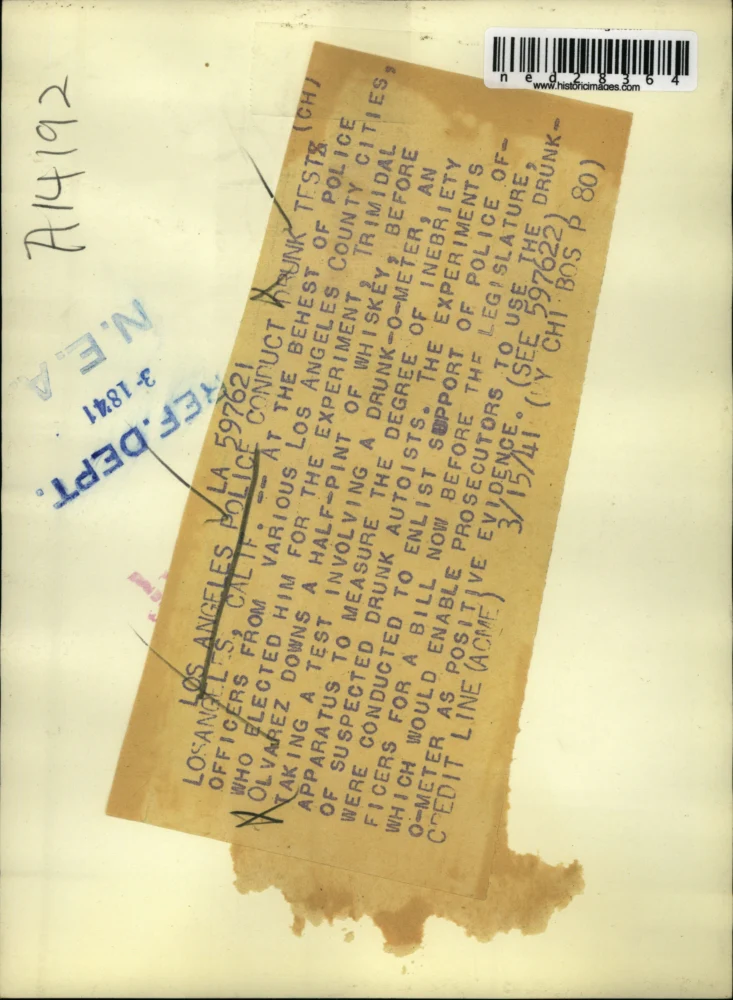 ned28364
www.historicimages.com
A14192
N.E.A
3-1841
REF. DEPT.
LA 597621
LOS ANGELES POLICE CONDUCT DRUNK TESTX (CH)
LOSANGELES, CALIF. -- AT THE BEHEST OF POLICE
OFFICERS FROM VARIOUS LOS ANGELES COUNTY CITIES,
WHO ELECTED HIM FOR THE EXPERIMENT, TRIMIDAL
OLVAREZ DOWNS A HALF-PINT OF WHISKEY, BEFORE
TAKING A TEST INVOLVING A DRUNK-O-METER, AN
APPARATUS TO MEASURE THE DEGREE OF INEBRIETY
OF SUSPECTED DRUNK AUTOISTS. THE EXPERIMENTS
WERE CONDUCTED TO ENLIST SUPPORT OF POLICE OF-
FICERS FOR A BILL NOW BEFORE THE LEGISLATURE,
WHICH WOULD ENABLE PROSECUTORS TO USE THE DRUNK-
O-METER AS POSITIVE EVIDENCE. (SEE 597622)
CREDIT LINE (ACME) 3/15/41 (NY CHI BOS P 80)